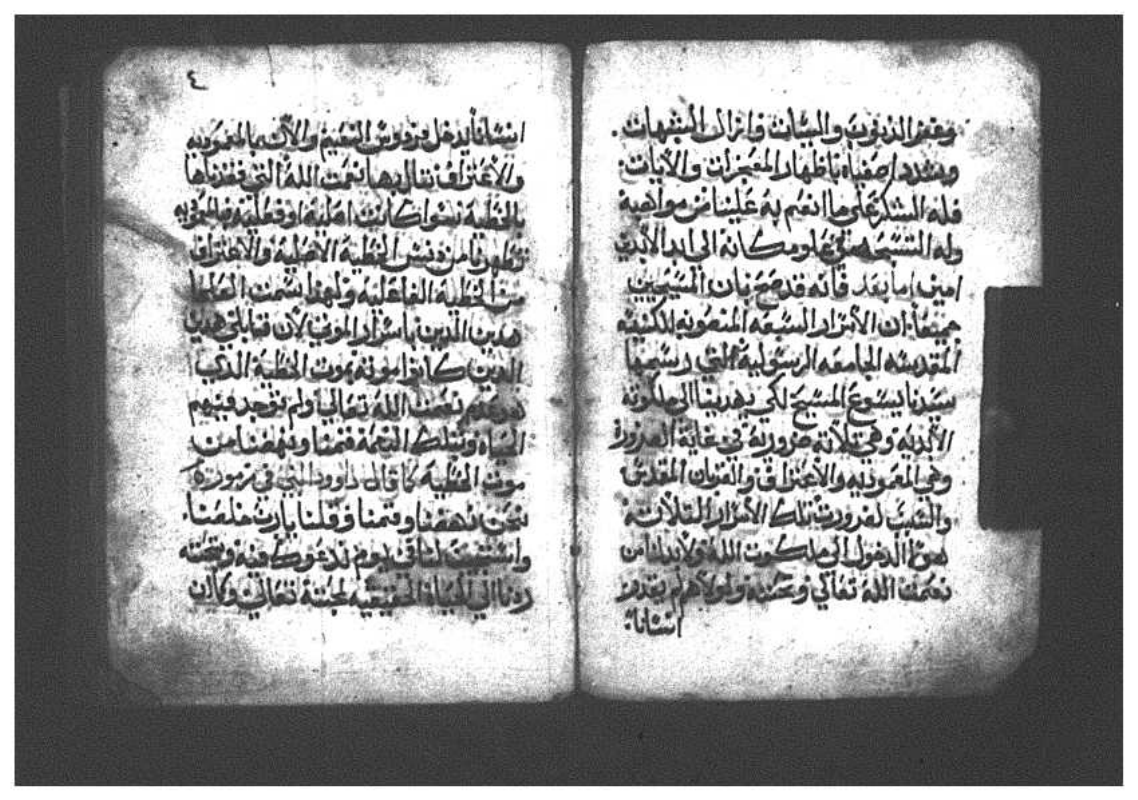 وغفر الذنوب والسيات وازال الشبهات.
وشدد اصفياه باظهار المعجزات والايات
فله الشكر على ما انعم به علينا من مواهبه
وله التسبيح في علو مكانه الى ابد الابدين
امين اما بعد فانه قد صح بان المسيحيين
جميعا ان الاسرار السبعه المنصوبه لكنيسه
المقدسه الجامعه الرسولية التي رسمها
سيدنا يسوع المسيح لكي يهدينا الى ملكوته
الابديه وهي ثلاثة ضروريه في غاية الضرورة
وهي المعموديه والاعتراف والقربان المقدس
والسبب لضرورت تلك الاسرار الثلاثة
هو الدخول الى ملكوت الله ولابد لنا من
نعمت الله تعالي ولولاهم لم يقدر
انسانا
٤
انسانا يدخل فردوس النعيم والان بالمعموديه
والاعتراف ننال بها نعمت الله التي فقدناها
بالخطية سوا كانت اصلية او فعلية فالمعموديه
تطهرنا من دنس الخطية الاصلية والاعتراف
من الخطية الفاعليه ولهذا سميت العلما
هدين السرين باسرار الموتي لان قابلي هدين
السرين كانوا موته بموت الخطية الذي
هو عدم نعمت الله تعالي ولم توجد فيهم
الحياه وبتلك النعمة قمنا ونهضنا من
موت الخطية كما قال داوود النبي في مزموره
نحن نهضنا وقمنا وقلنا يارب خلصنا.
واستجيب لنا في يوم ندعوك فيه
ردنا الي الحياة الحقيقيه لجنته تعالي وكان